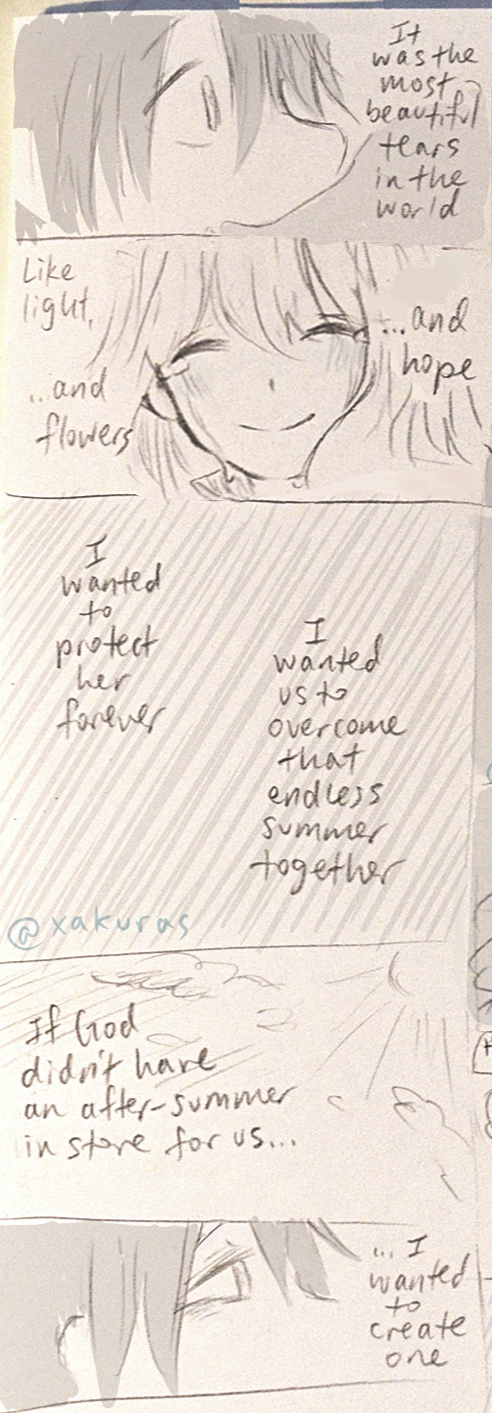 It
was the
most
beautiful
tears
in the
world
Like
light,
...and
flowers
...and
hope
I
wanted
to
protect
her
forever
I
wanted
us to
overcome
that
endless
summer
together
@xakuras
If God
didn't have
an after-summer
in store for us...
...I
wanted
to
create
one